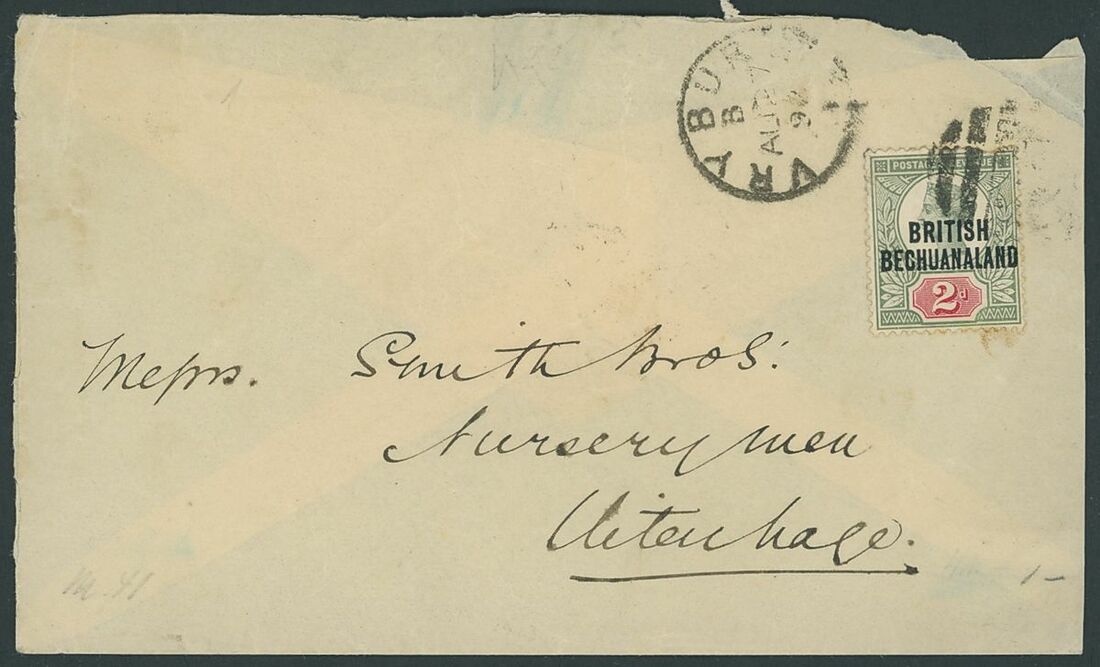 VRYBUR
B
AU 27
92
POSTAGE REVENUE
BRITISH
BECHUANALAND
2d
Messrs. Smith Bros:
Nurserymen
Uitenhage.
1
1-